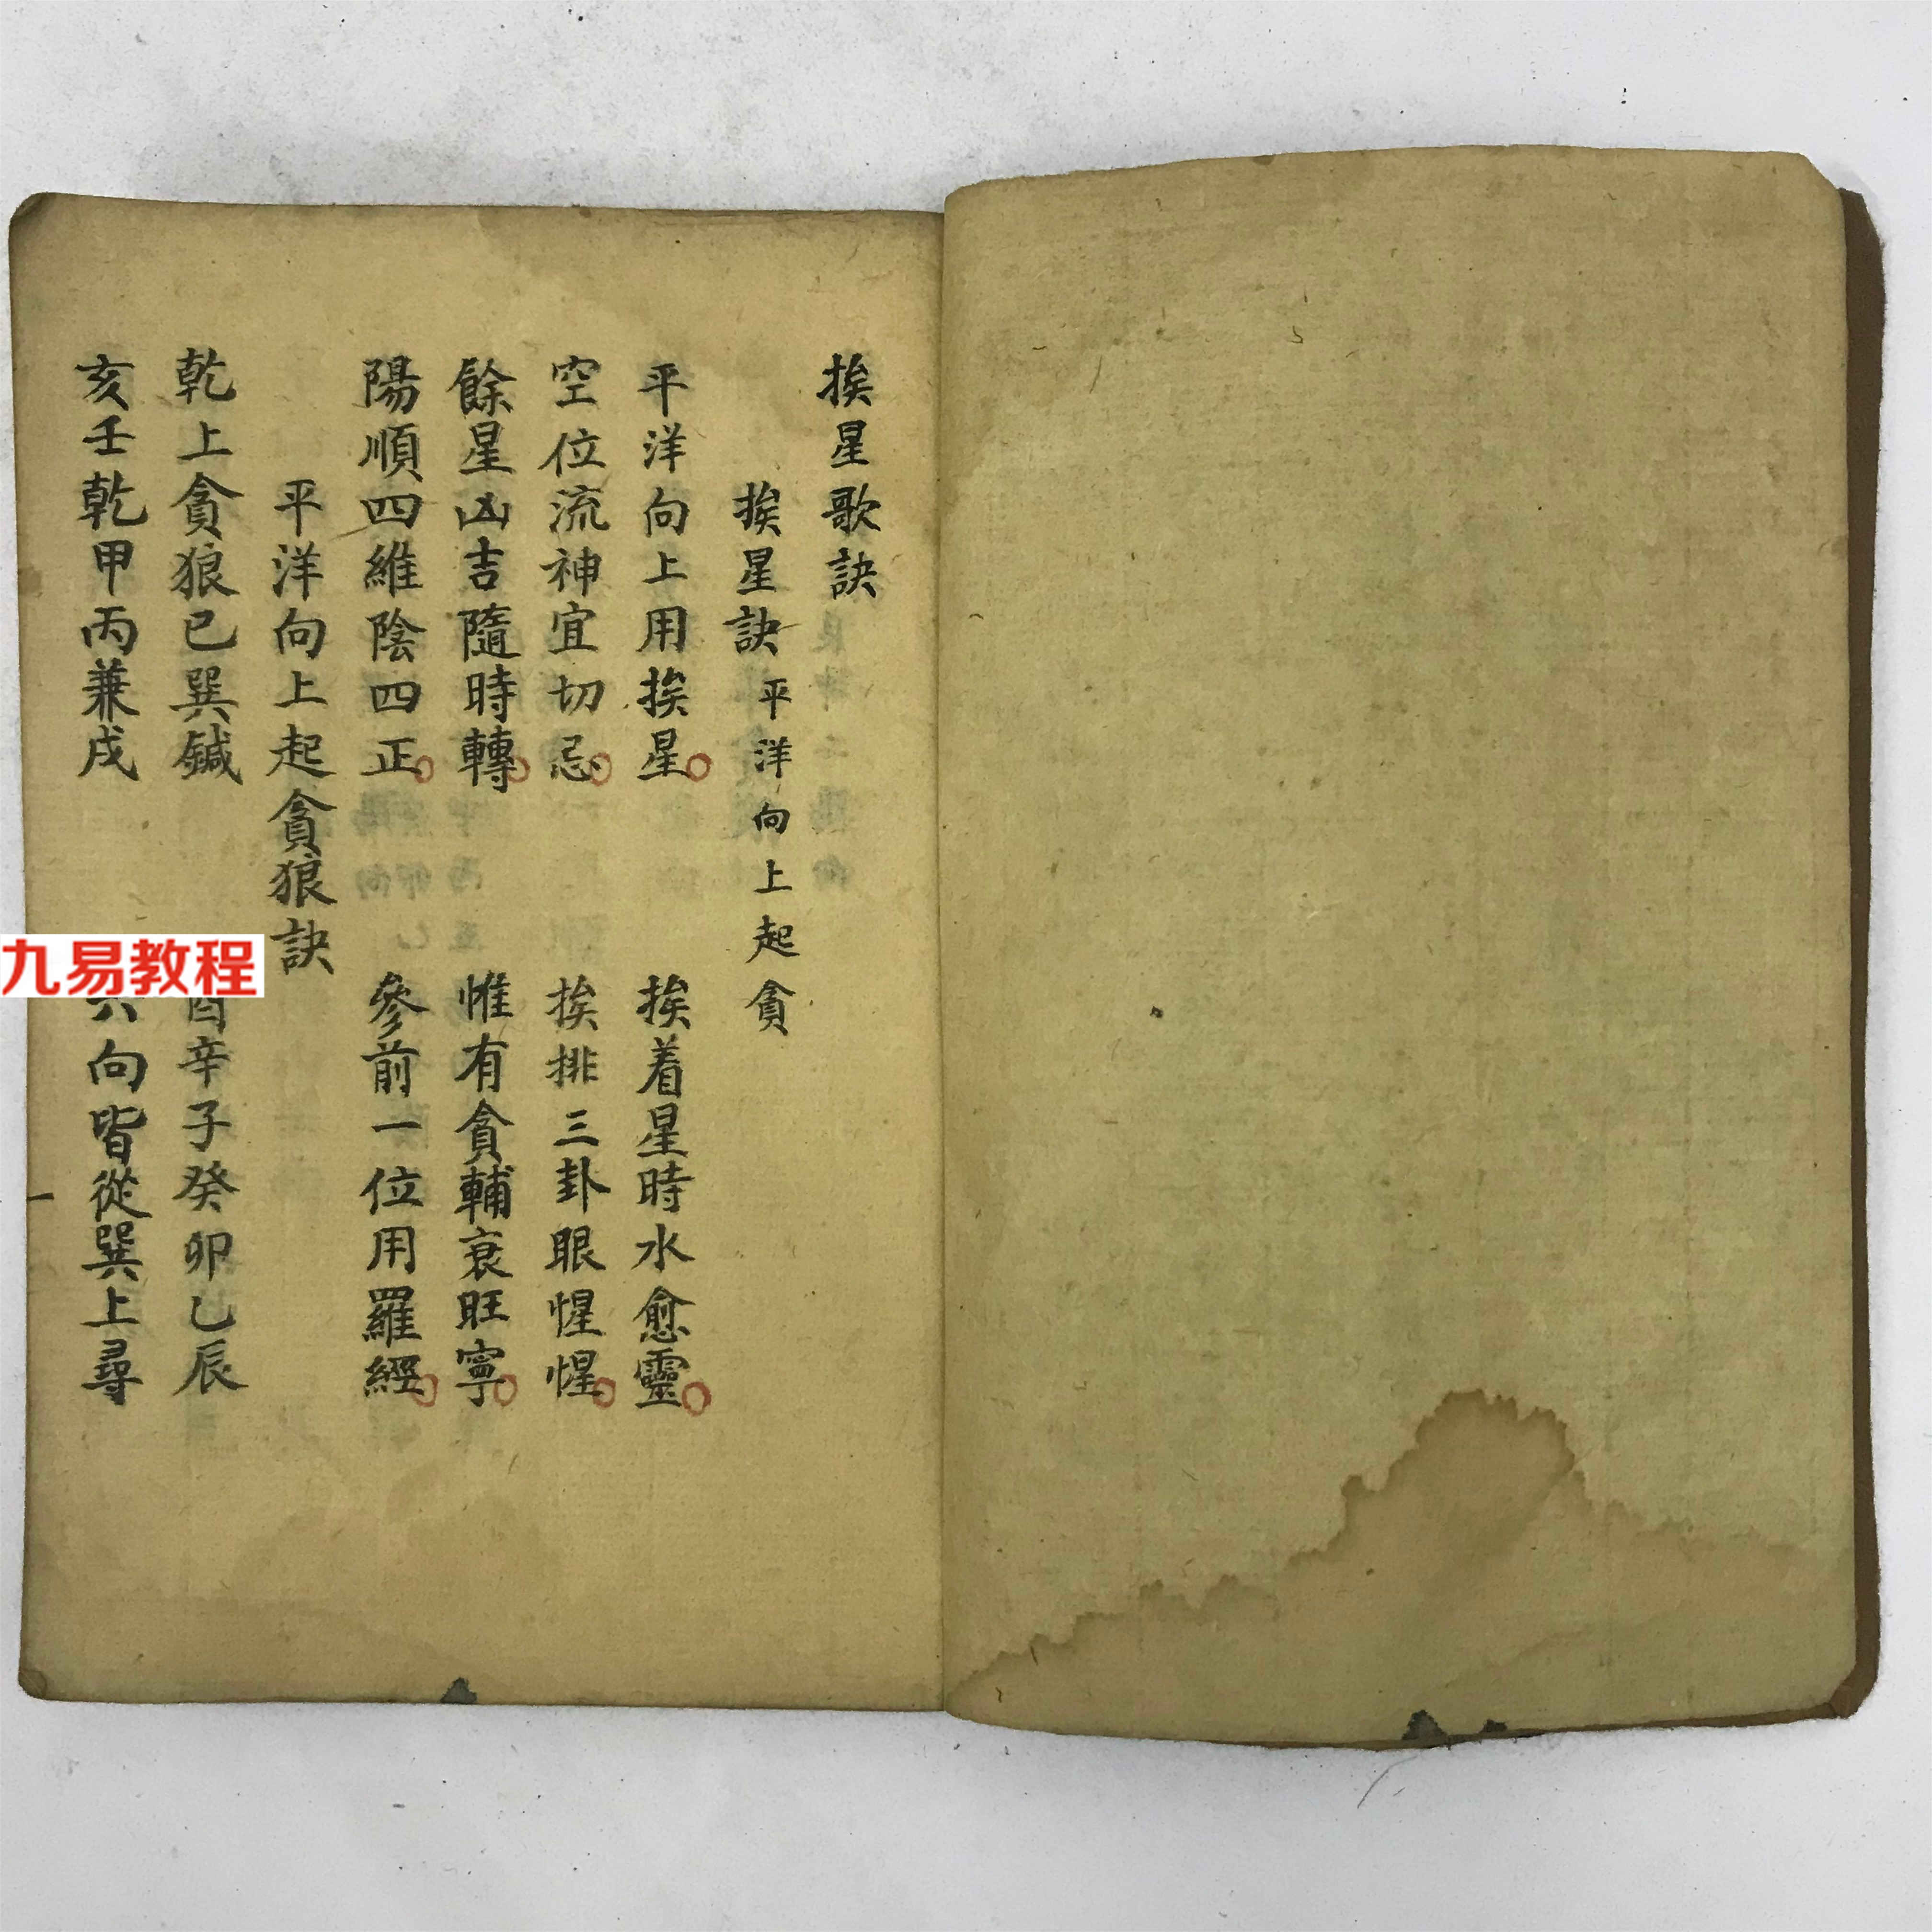 挨星歌訣
挨星訣 平洋向上起貪
平洋向上用挨星 挨着星時水愈靈
空位流神宜切忌 挨排三卦眼惺惺
餘星凶吉隨時轉 惟有貪輔衰旺寧
陽順四維陰四正 參前一位用羅經
平洋向上起貪狼訣
乾上貪狼巳巽鍼 酉辛子癸卯乙辰
亥壬乾甲丙兼戌 六向皆從巽上尋
九易教程